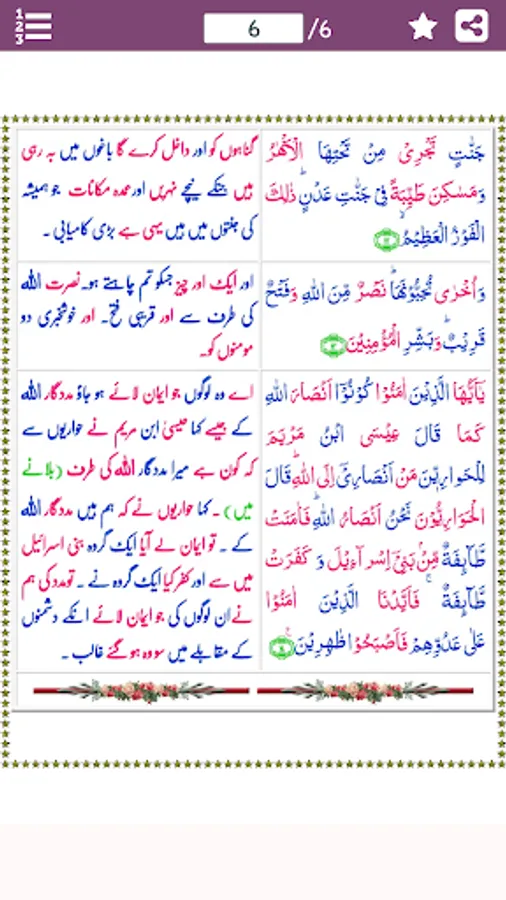 1
2
3
6
/6
جَنّٰتٍ تَجْرِیْ مِنْ تَحْتِهَا الْاَنْهٰرُ
وَمَسٰكِنَ طَیِّبَةً فِیْ جَنّٰتِ عَدْنٍ ذٰلِكَ
الْفَوْزُ الْعَظِیْمُ ۱۲
گناہوں کو اور داخل کرے گا باغوں میں بہ رہی
ہیں جنکے نیچے نہریں اور عمدہ مکانات جو ہمیشہ
کی جنتوں میں ہیں یہی ہے بڑی کامیابی ۔
وَاُخْرٰی تُحِبُّوْنَهَا نَصْرٌ مِّنَ اللهِ وَفَتْحٌ
قَرِیْبٌ وَبَشِّرِ الْمُؤْمِنِیْنَ ۱۳
اور ایک اور چیز جسکو تم چاہتے ہو۔ نصرت اللہ
کی طرف سے اور قریبی فتح۔ اور خوشخبری دو
مومنوں کو۔
یٰۤاَیُّهَا الَّذِیْنَ اٰمَنُوْا كُوْنُوْۤا اَنْصَارَ اللهِ
كَمَا قَالَ عِیْسَی ابْنُ مَرْیَمَ
لِلْحَوَارِیّٖنَ مَنْ اَنْصَارِیْۤ اِلَی اللهِ قَالَ
الْحَوَارِیُّوْنَ نَحْنُ اَنْصَارُ اللهِ فَاٰمَنَتْ
طَّآىِٕفَةٌ مِّنْۢ بَنِیْۤ اِسْرَآءِیْلَ وَ كَفَرَتْ
طَّآىِٕفَةٌ فَاَیَّدْنَا الَّذِیْنَ اٰمَنُوْا
عَلٰی عَدُوِّهِمْ فَاَصْبَحُوْا ظٰهِرِیْنَ ۱۴
اے وہ لوگوں جو ایمان لائے ہو جاؤ مددگار اللہ
کے جیسے کہا عیسیٰ ابن مریم نے حواریوں سے
کہ کون ہے میرا مددگار اللہ کی طرف (بلانے
میں) ۔ کہا حواریوں نے کہ ہم ہیں مددگار اللہ
کے ۔ تو ایمان لے آیا ایک گروہ بنی اسرائیل
میں سے اور کفر کیا ایک گروہ نے ۔ تو مدد کی ہم
نے ان لوگوں کی جو ایمان لائے انکے دشمنوں
کے مقابلے میں سو وہ ہو گئے غالب ۔